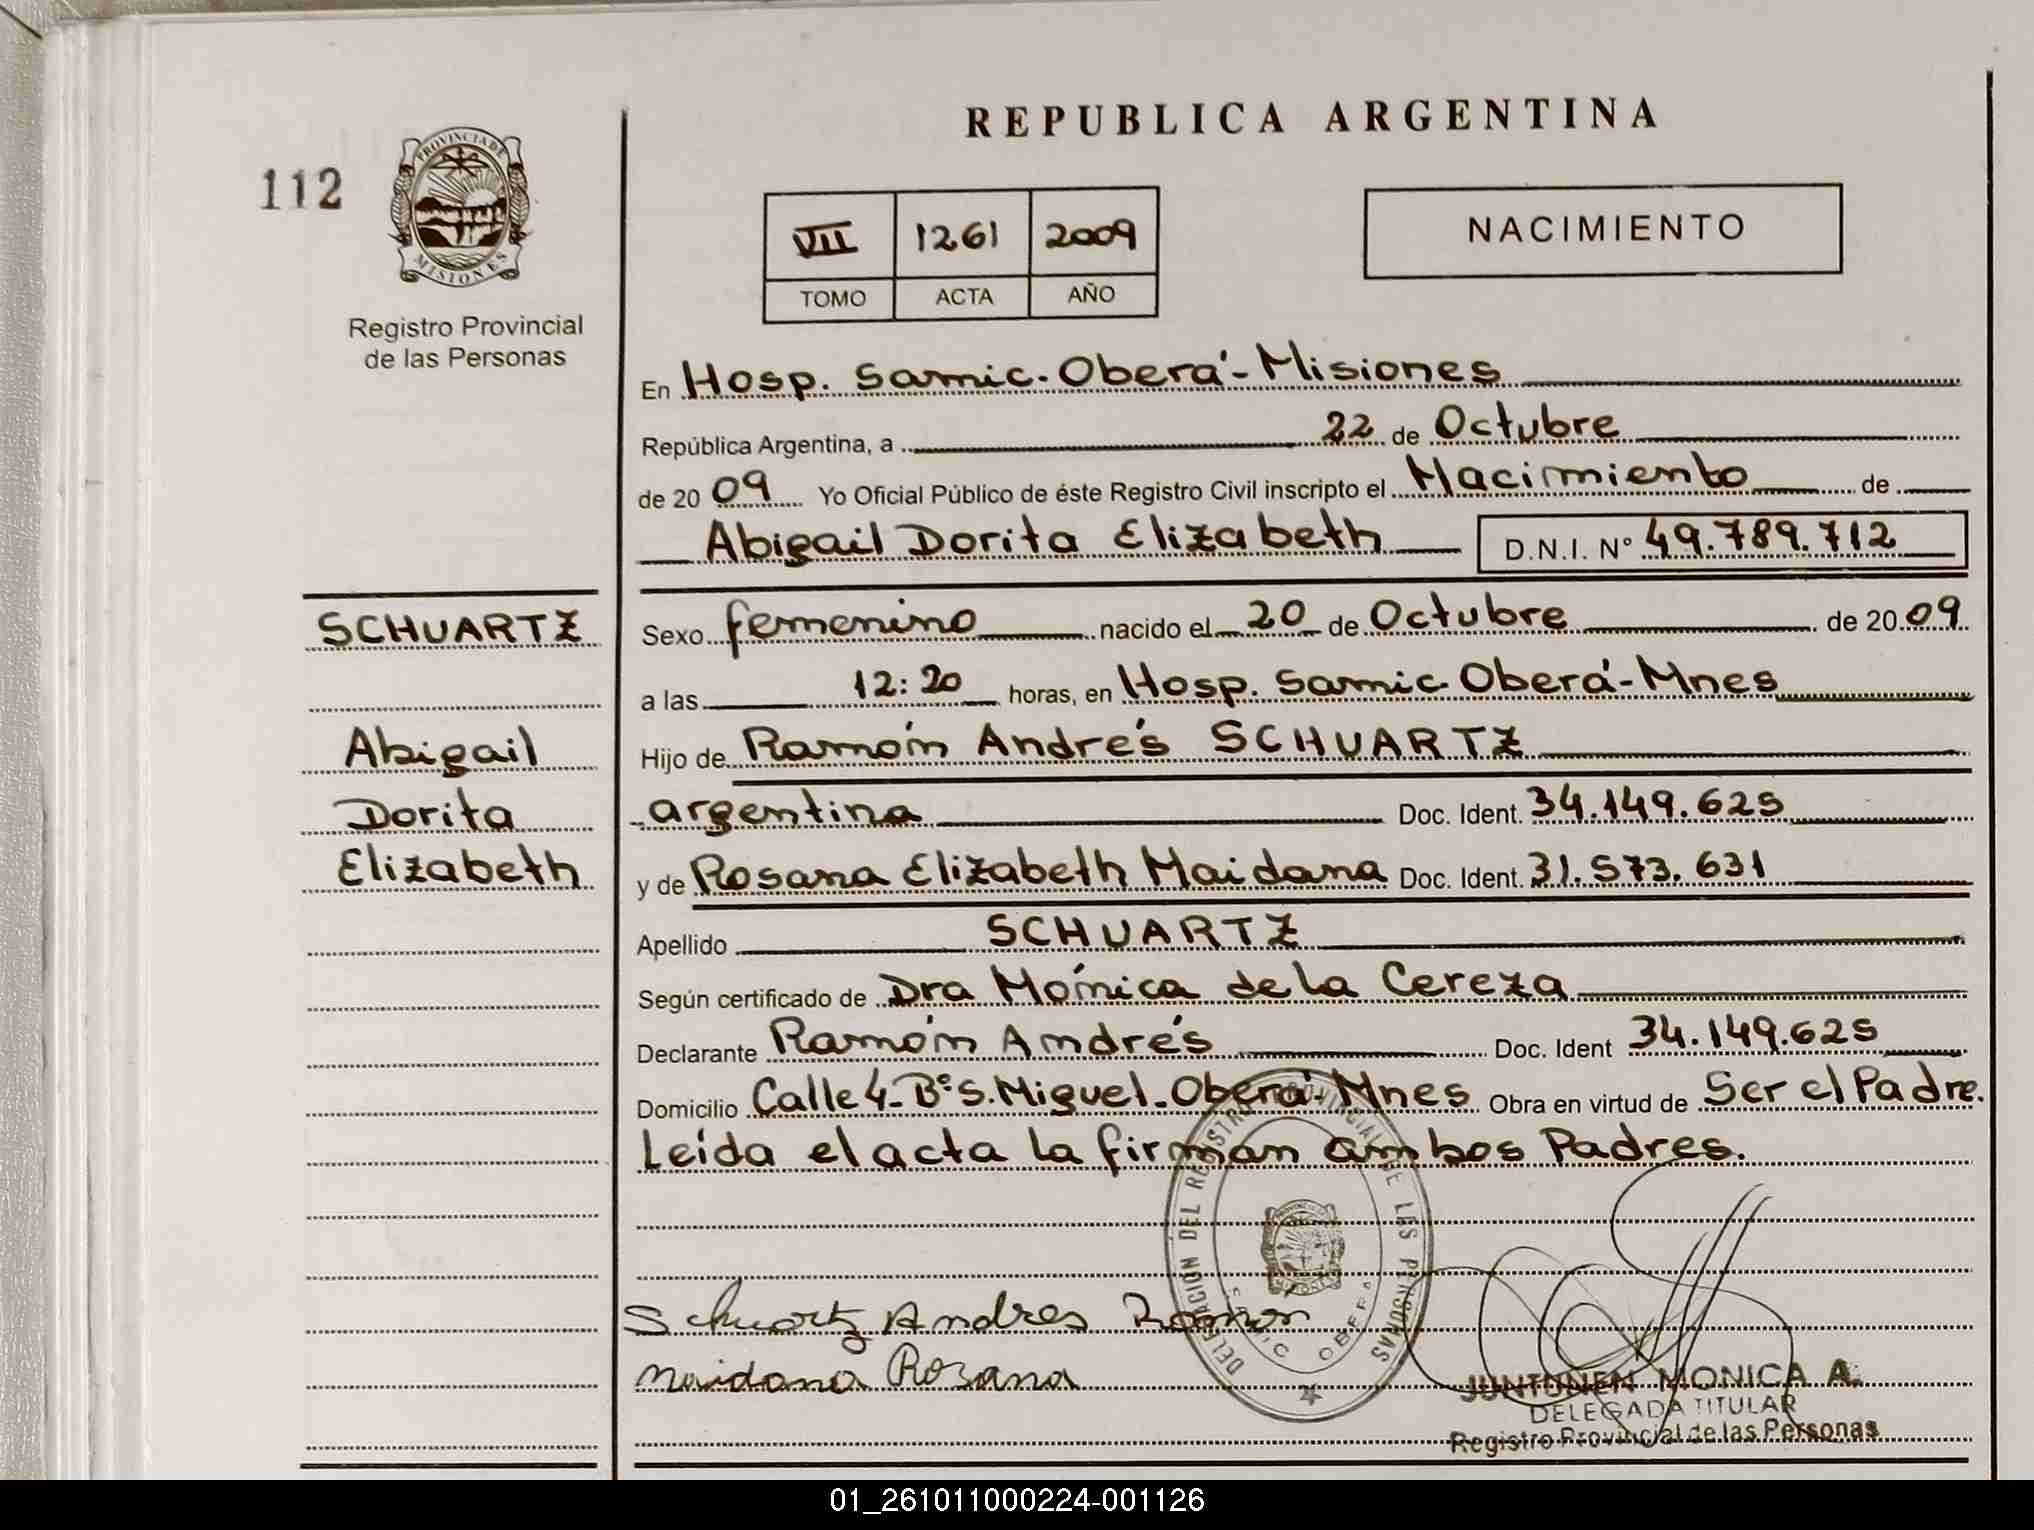 REPUBLICA ARGENTINA
112
PROVINCIA DE
MISIONES
Registro Provincial
de las Personas
VII 1261 2009
TOMO ACTA AÑO
NACIMIENTO
En Hosp. Samic. Oberá - Misiones
República Argentina, a 22 de Octubre
de 2009 Yo Oficial Público de éste Registro Civil inscripto el Nacimiento de
Abigail Dorita Elizabeth D.N.I. Nº 49.789.712
SCHUARTZ
Abigail
Dorita
Elizabeth
Sexo femenino nacido el 20 de Octubre de 2009
a las 12:20 horas, en Hosp. Samic Oberá - Mnes
Hijo de Ramón Andrés SCHUARTZ
argentina Doc. Ident. 34.149.625
y de Rosana Elizabeth Maidana Doc. Ident. 31.573.631
Apellido SCHUARTZ
Según certificado de Dra Mónica de la Cereza
Declarante Ramón Andrés Doc. Ident 34.149.625
Domicilio Calle 4 - Bº S. Miguel - Oberá - Mnes Obra en virtud de Ser el Padre.
Leída el acta la firman ambos Padres.
DELEGACION DEL REGISTRO PROVINCIAL DE LAS PERSONAS
SAMIC OBERA
Schuartz Andres Ramon
Maidana Rosana
JUNTUNEN MONICA A.
DELEGADA TITULAR
Registro Provincial de las Personas
01_261011000224-001126